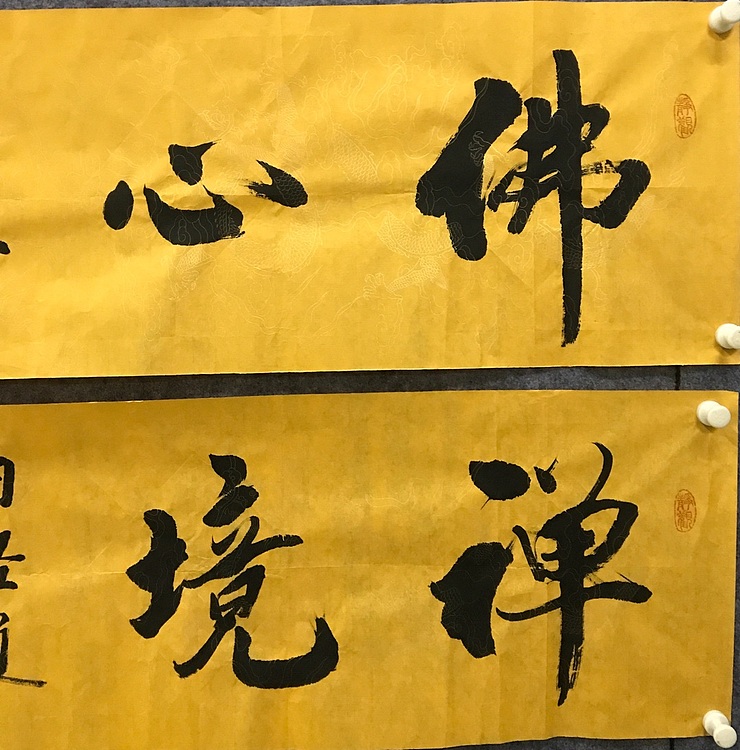 佛心
禅境